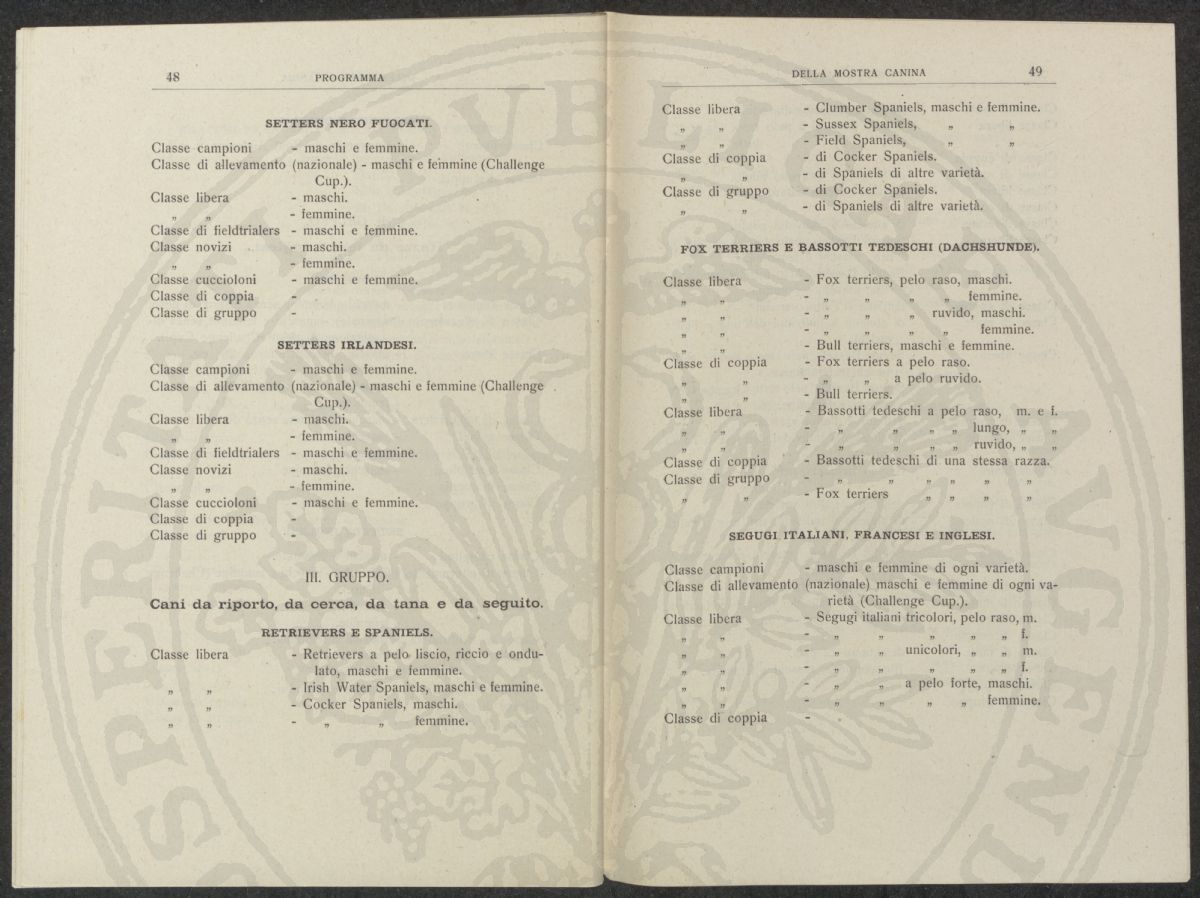 48 PROGRAMMA
SETTERS NERO FUOCATI.
Classe campioni - maschi e femmine.
Classe di allevamento (nazionale) - maschi e femmine (Challenge
Cup.).
Classe libera - maschi.
„ „ - femmine.
Classe di fieldtrialers - maschi e femmine.
Classe novizi - maschi.
„ „ - femmine.
Classe cuccioloni - maschi e femmine.
Classe di coppia -
Classe di gruppo -
SETTERS IRLANDESI.
Classe campioni - maschi e femmine.
Classe di allevamento (nazionale) - maschi e femmine (Challenge
Cup.).
Classe libera - maschi.
„ „ - femmine.
Classe di fieldtrialers - maschi e femmine.
Classe novizi - maschi.
„ „ - femmine.
Classe cuccioloni - maschi e femmine.
Classe di coppia -
Classe di gruppo -
III. GRUPPO.
Cani da riporto, da cerca, da tana e da seguito.
RETRIEVERS E SPANIELS.
Classe libera - Retrievers a pelo liscio, riccio e ondu-
lato, maschi e femmine.
„ „ - Irish Water Spaniels, maschi e femmine.
„ „ - Cocker Spaniels, maschi.
„ „ - „ „ femmine.
DELLA MOSTRA CANINA 49
Classe libera - Clumber Spaniels, maschi e femmine.
„ „ - Sussex Spaniels, „ „
„ „ - Field Spaniels, „ „
Classe di coppia - di Cocker Spaniels.
„ „ - di Spaniels di altre varietà.
Classe di gruppo - di Cocker Spaniels.
„ „ - di Spaniels di altre varietà.
FOX TERRIERS E BASSOTTI TEDESCHI (DACHSHUNDE).
Classe libera - Fox terriers, pelo raso, maschi.
„ „ - „ „ „ „ femmine.
„ „ - „ „ „ ruvido, maschi.
„ „ - „ „ „ „ femmine.
„ „ - Bull terriers, maschi e femmine.
Classe di coppia - Fox terriers a pelo raso.
„ „ - „ „ a pelo ruvido.
„ „ - Bull terriers.
Classe libera - Bassotti tedeschi a pelo raso, m. e f.
„ „ - „ „ „ „ lungo, „ „
„ „ - „ „ „ „ ruvido, „ „
Classe di coppia - Bassotti tedeschi di una stessa razza.
Classe di gruppo - „ „ „ „ „ „
„ „ - Fox terriers „ „ „ „
SEGUGI ITALIANI, FRANCESI E INGLESI.
Classe campioni - maschi e femmine di ogni varietà.
Classe di allevamento (nazionale) maschi e femmine di ogni va-
rietà (Challenge Cup.).
Classe libera - Segugi italiani tricolori, pelo raso, m.
„ „ - „ „ „ „ „ f.
„ „ - „ „ unicolori, „ „ m.
„ „ - „ „ „ „ „ f.
„ „ - „ „ a pelo forte, maschi.
„ „ - „ „ „ „ femmine.
Classe di coppia -